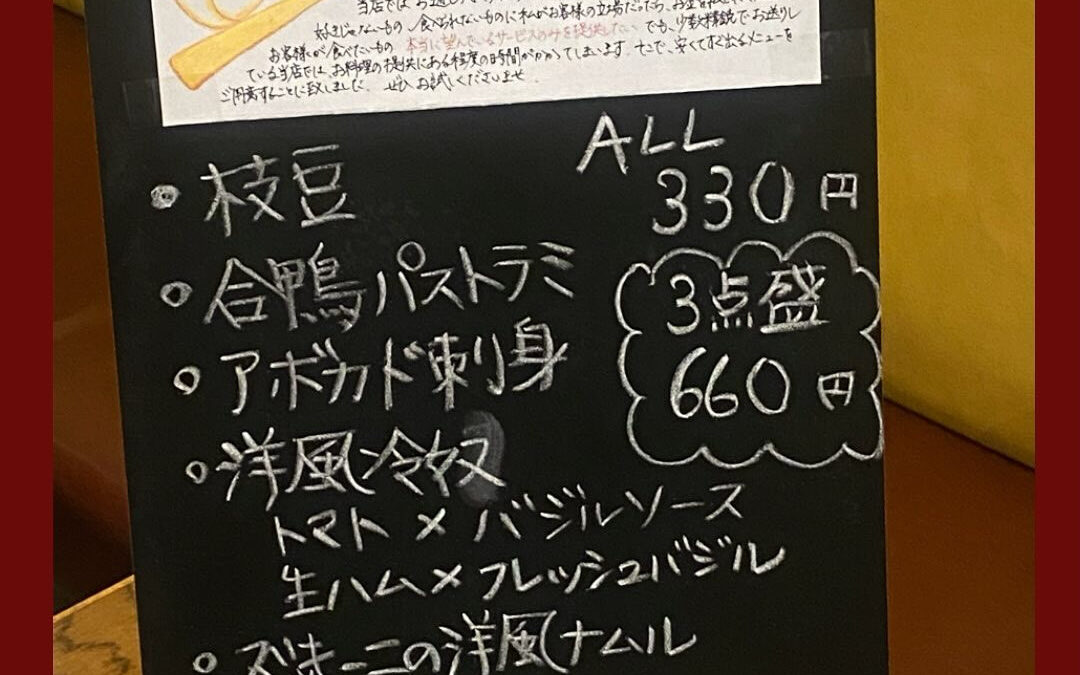 当店では、お通し
好きじゃないもの、食べられないものに私がお客様の立場だったら、お金を
お客様が食べたいもの 本当に望んでいるサービスのみを提供したい でも、少数精鋭でお送りし
ている当店では、お料理の提供にある程度の時間がかかってしまいます。そこで、安くてすぐ出るメニューを
ご用意することに致しました。ぜひお試しくださいませ。
ALL
・枝豆 330円
・合鴨パストラミ
3点盛
・アボカド刺身
660円
・洋風冷奴
トマト×バジルソース
生ハム×フレッシュバジル
・ズッキーニの洋風ナムル